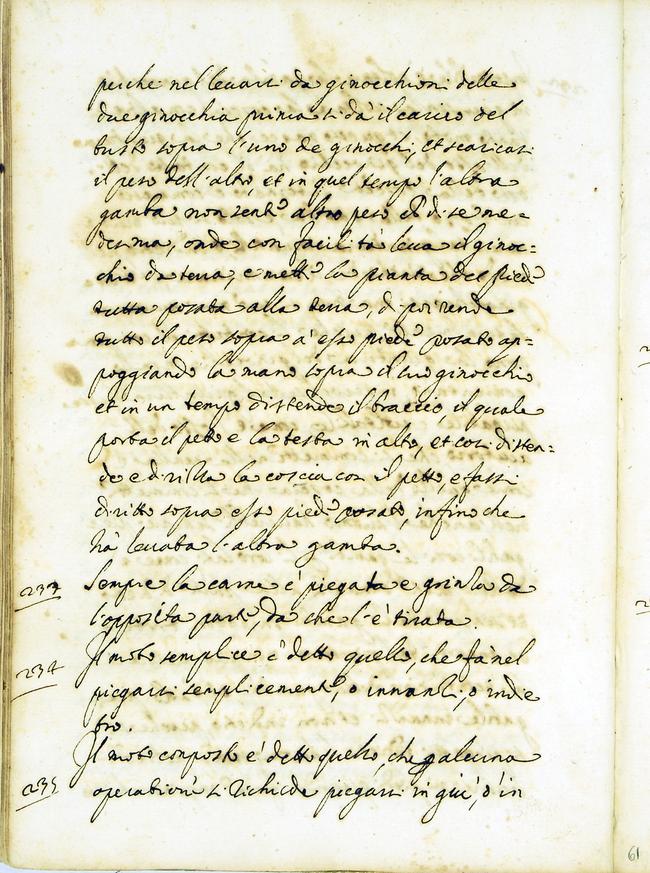 perche nel levarsi da ginocchioni delle
due ginocchia prima si dà il carico del
busto sopra l'uno de ginocchi, et scaricasi
il peso dell'altro, et in quel tempo l'altra
gamba non sente altro peso che di se me=
desima, onde con facilità leva il ginoc=
chio da terra, e mette la pianta del piede
tutta posata alla terra, di poi rende
tutto il peso sopra à esso piede posato ap=
poggiando la mano sopra il suo ginocchio
et in un tempo distende il braccio, il quale
porta il petto e la testa in alto, et così disten=
de e drizza la coscia con il petto, e fassi
diritto sopra esso piede posato, infino che
hà levata l'altra gamba.
233 Sempre la carne è piegata e grinza da
l'opposita parte, da che l'è tirata.
234 Il moto semplice è detto quello, che fà nel
piegarsi semplicemente, o innanzi, o indie
tro.
Il moto composto è detto quello, che p alcuna
235 operatione si richiede piegarsi in giù, ò in
61